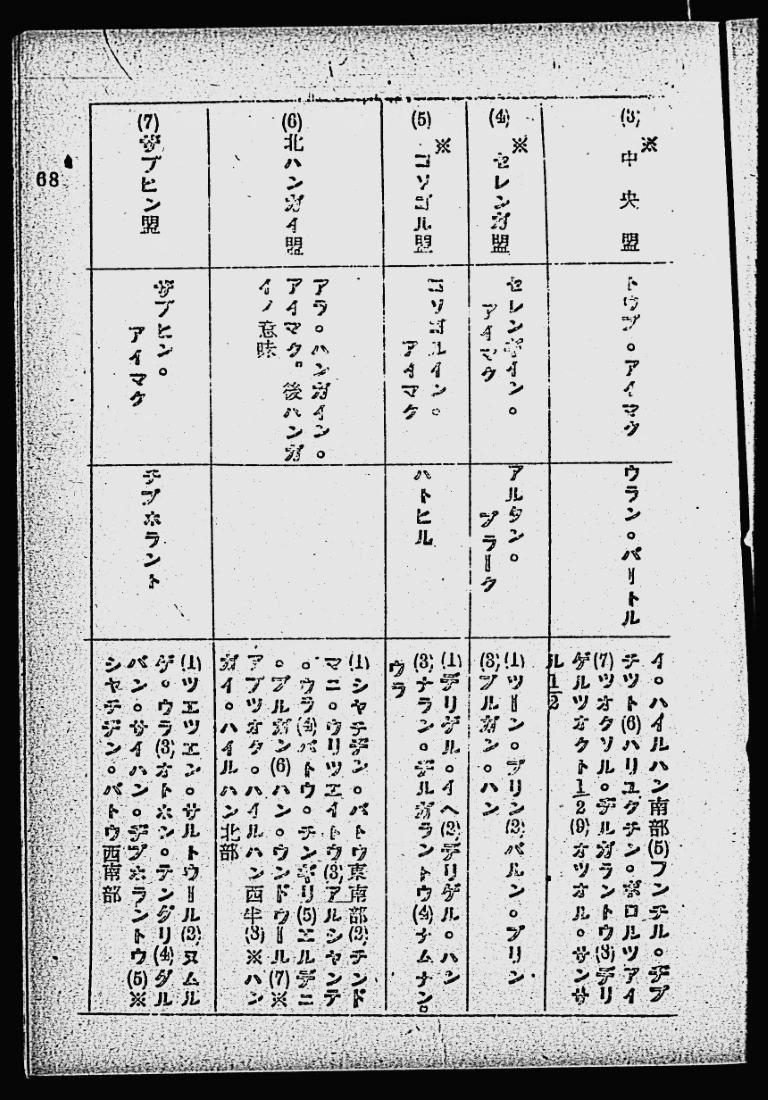 (3)
※
中央盟
トウブ。アイマク
ウラン。バートル
イ。ハイルハン南部(5)フンチル。デブ
チツト(6)ハリユグチン。ボロルツアイ
(7)ツオクソル。デルガラントウ(8)デリ
ゲルツオクト1/2(9)オツオル。サンサ
ル1/2
(4)
※
セレンガ盟
セレンギイン。
アイマク
アルタン。
ブラーク
(1)ツーン。ブリン(2)バルン。ブリン
(3)ブルガン。ハン
(5)
※
コソゴル盟
コソゴルイン。
アイマク
ハトヒル
(1)デリゲル。イヘ(2)デリゲル。ハン
(3)ナラン。デルガラントウ(4)ナムナン。
ウラ
(6)
北ハンガイ盟
アラ。ハンガイン。
アイマク。後ハンガ
イノ意味
(1)シヤチヂン。バトウ東南部(2)チンド
マニ。ウリツエイトウ(3)アルシヤンテ
。ウラ(4)バトウ。チンギリ(5)エルデニ
。ブルガン(6)ハン。ウンドウール(7)※
アブツオタ。ハイルハン西半(8)※ハン
ガイ。ハイルハン北部
(7)
ザブヒン盟
ザブヒン。
アイマク
チブホラント
(1)ツエツエン。サルトウール(2)ヌムル
ゲ。ウラ(3)オトホン。テングリ(4)ダル
バン。サイハン。デブホラントウ(5)※
シヤチヂン。バトウ西南部
68